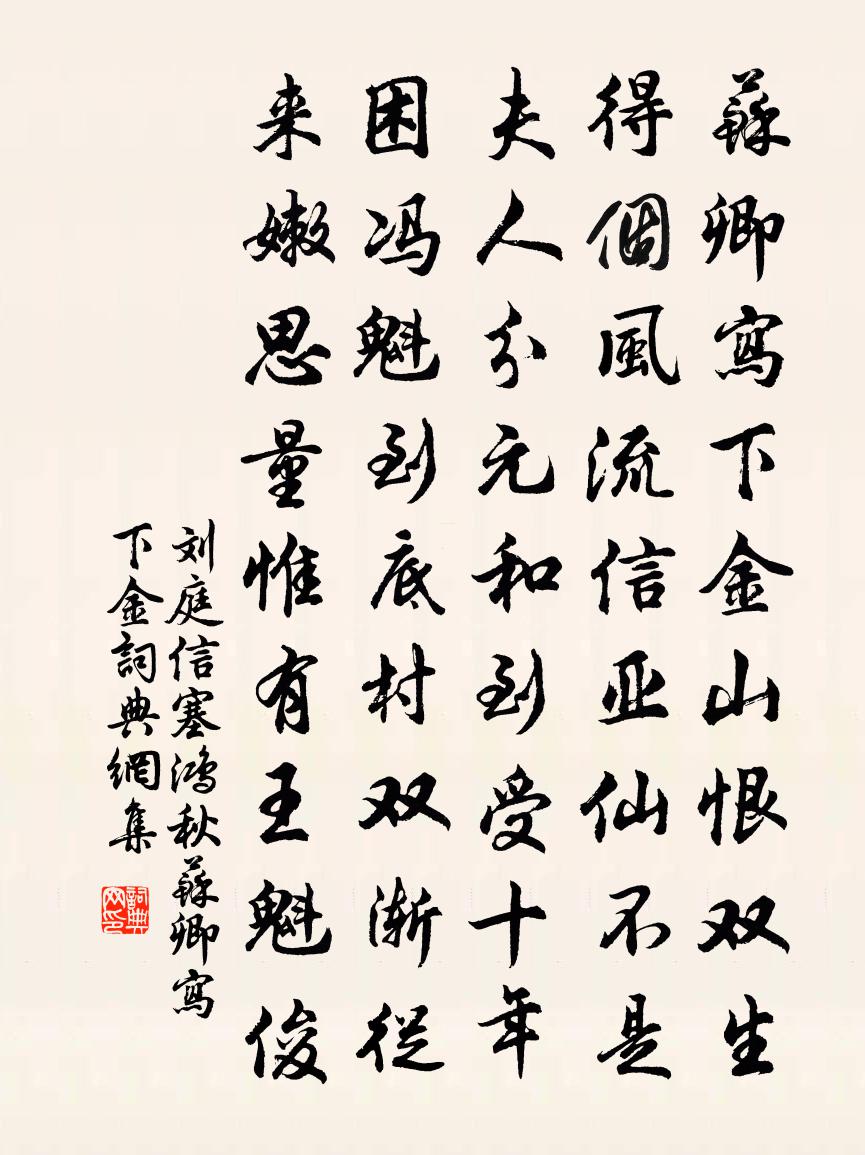 蘇卿寫下金山恨双生
得個風流信亚仙不是
夫人分元和到受十年
困冯魁到底村双渐從
来嫩思量惟有王魁俊
刘庭信塞鴻秋蘇卿寫
下金詞典網集
詞典网印